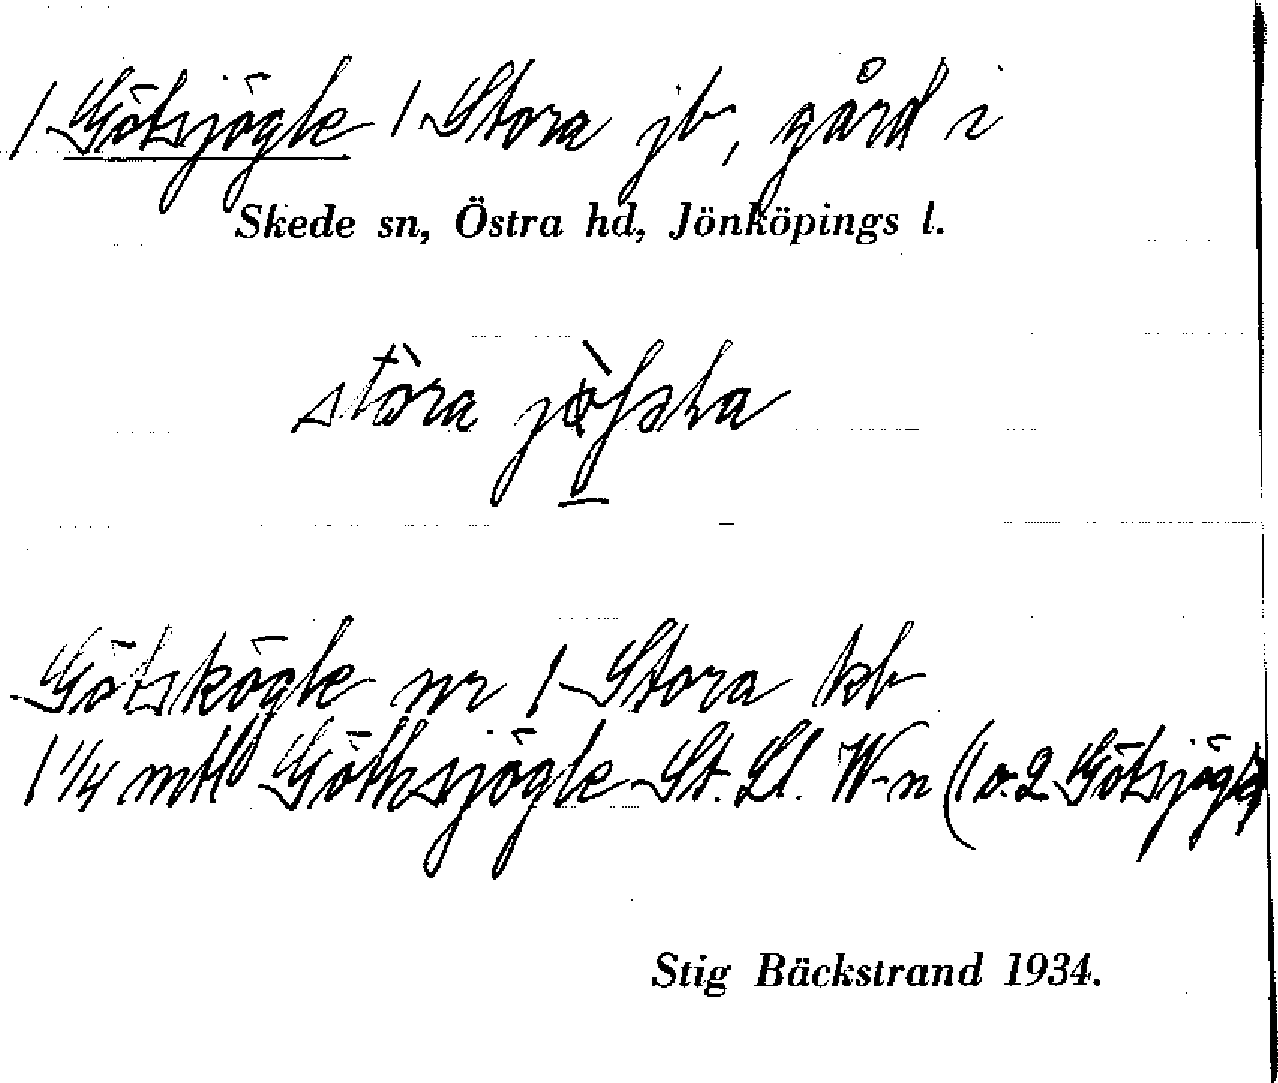 1 Götsjögle 1 Stora jb, gård i
Skede sn, Östra hd, Jönköpings l.
stòra
Götskögle nr 1 Stora kb
1 1/4 mtl Göthsjögle St. Sl. W-n (1 o. 2 Götsjögle)
Stig Bäckstrand 1934.